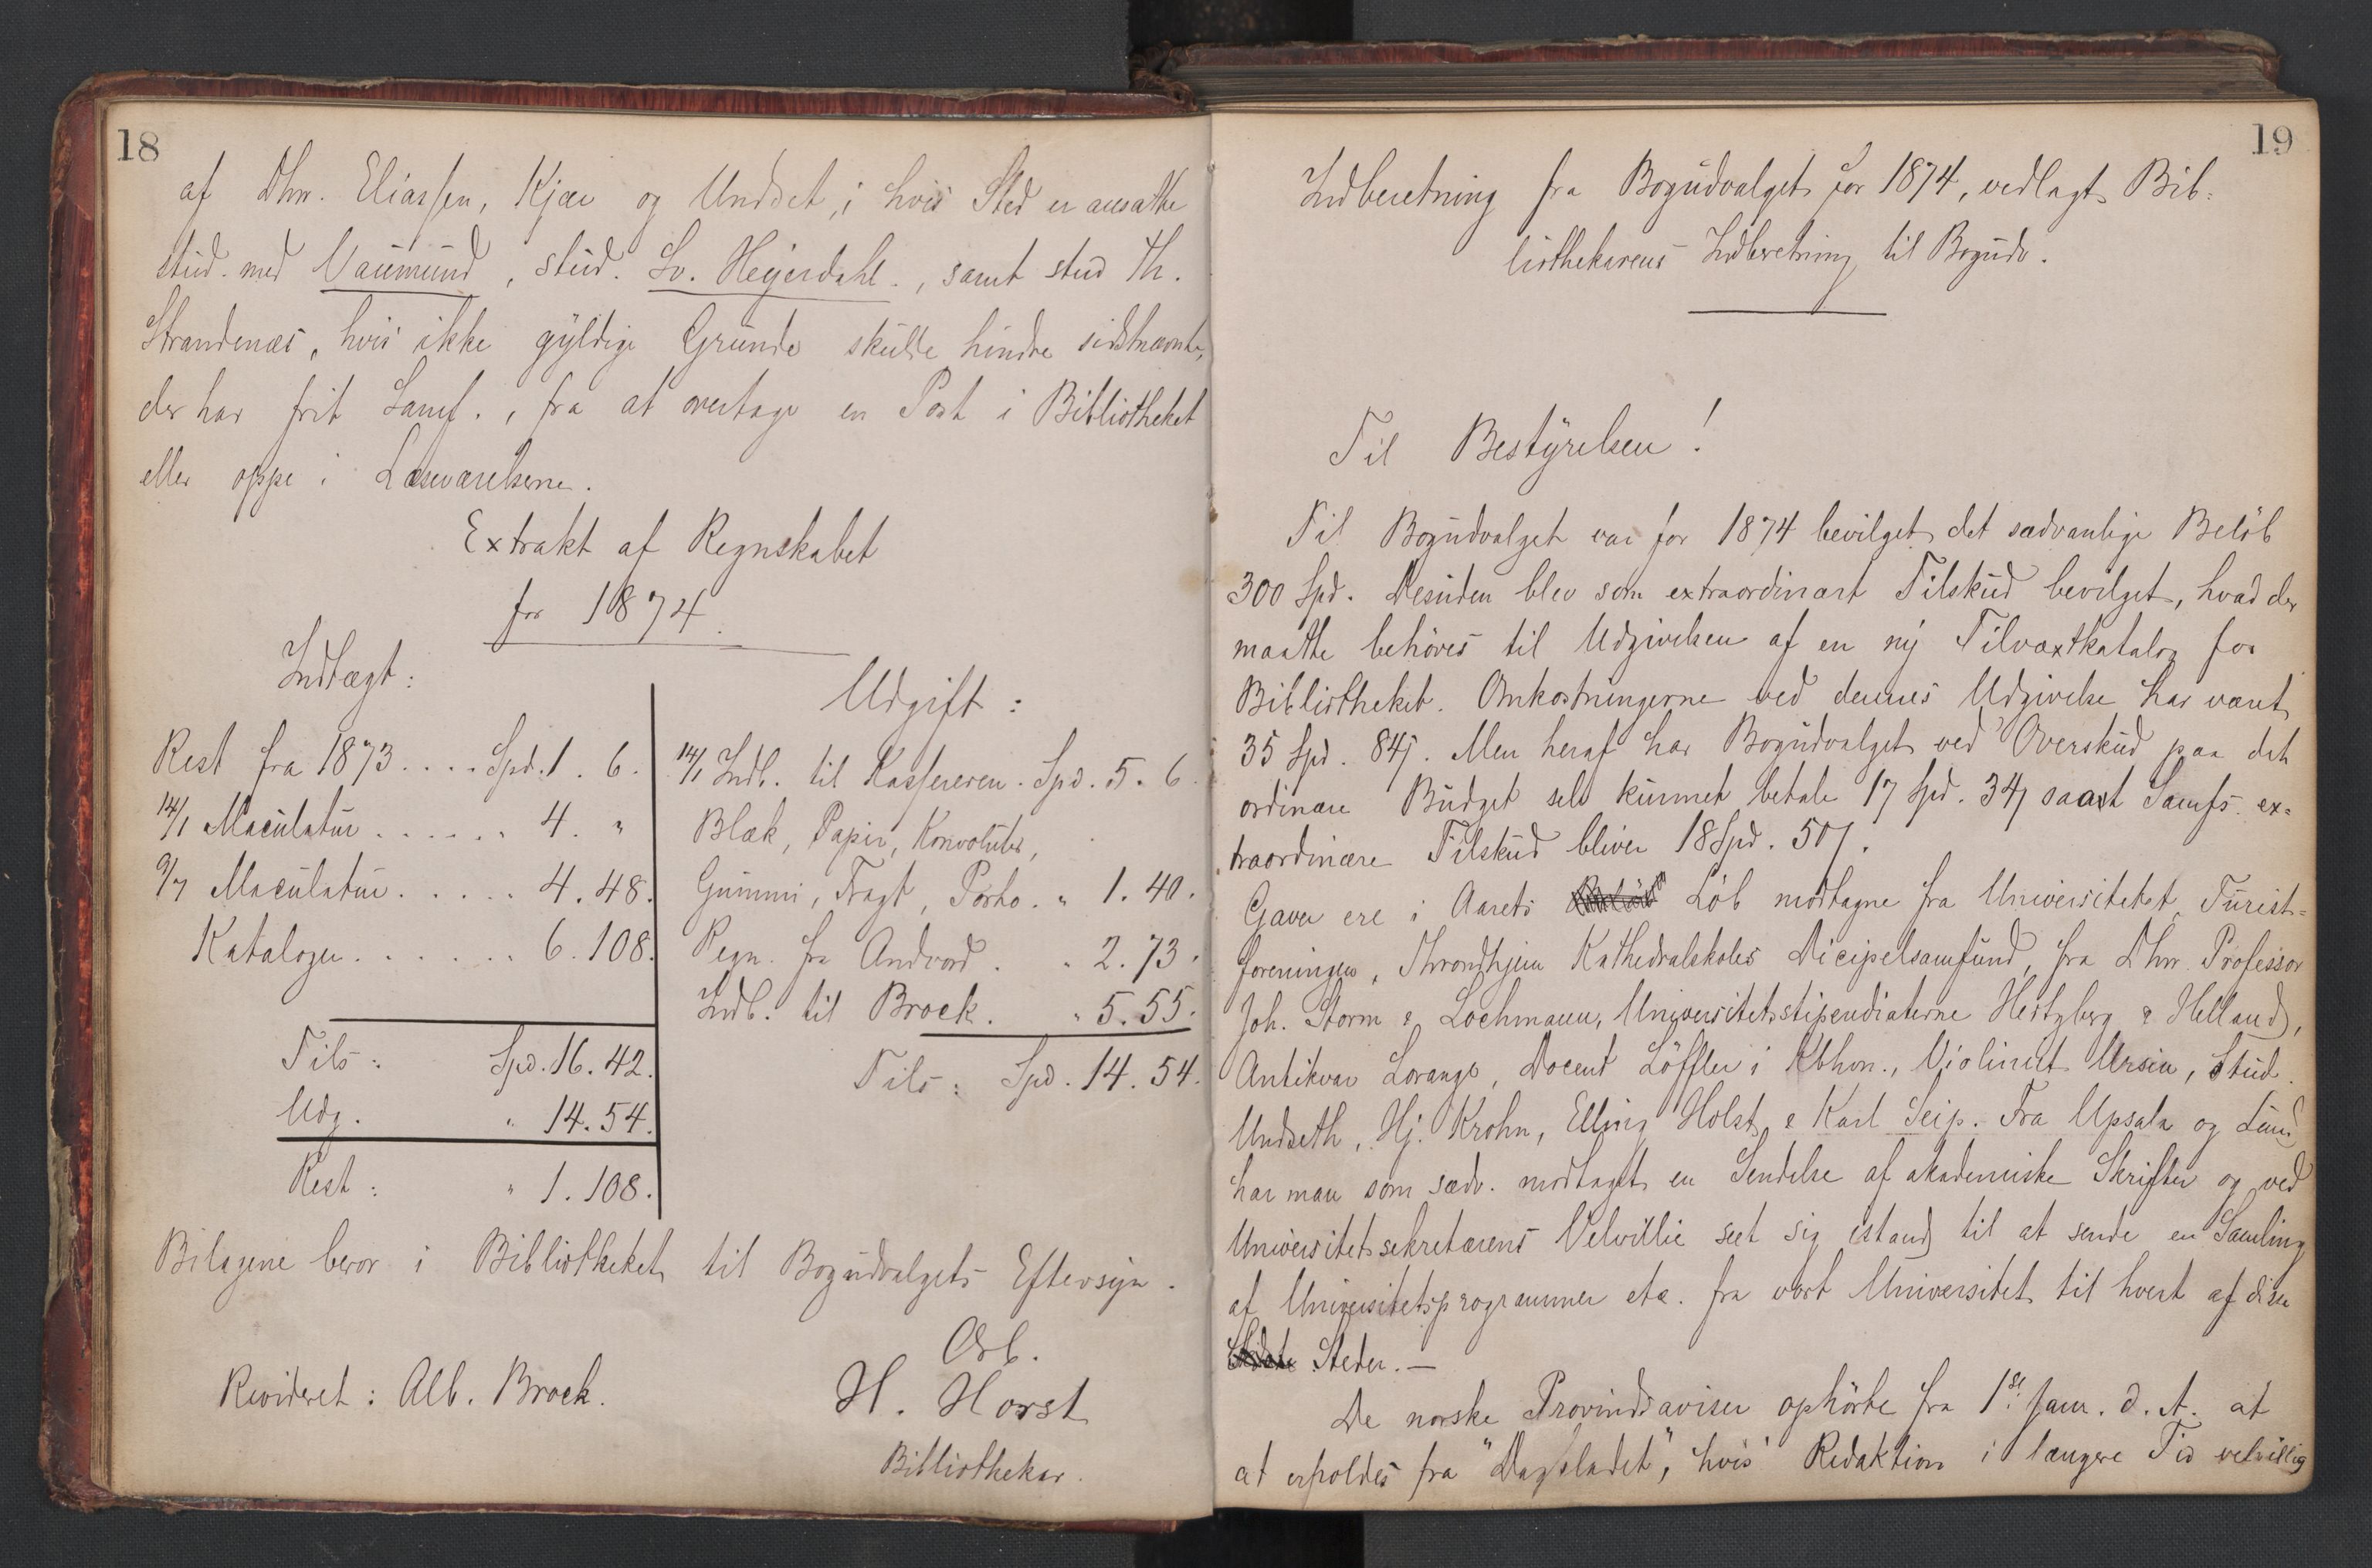 18
af Dhrr. Eliassen, Kjær og Undset, i hvis Sted er ansatte
stud. med Vaumund, stud. Sv. Heyerdahl., samt stud Th.
Strandenæs, hvis ikke gyldige Grunde skulde hindre sidstnævnte,
der har frit Samf., fra at overtage en Post i Bibliotheket
eller oppe i Læseværelserne.
Extrakt af Regnskabet
for 1874.
Indtægt:
Rest fra 1873.... Spd. 1. 6.
14/1 Maculatur...... 4. "
9/7 Maculatur..... 4. 48.
Kataloger...... 6. 108.
Tils: Spd. 16. 42.
Udg. " 14. 54.
Rest: " 1. 108.
Udgift:
14/1 Indb. til Kassereren. Spd. 5. 6.
Blæk, Papir, Konvoluter,
Gummi, Fragt, Porto. " 1. 40.
Regn. fra Andvord. " 2. 73.
Indb. til Brock. " 5. 55.
Tils: Spd. 14. 54.
Bilagene beror i Bibliotheket til Bogudvalgets Eftersyn.
Ærb.
Revideret: Alb. Brock.
H. Horst
Bibliothekar.
19
Indberetning fra Bogudvalget for 1874, vedlagt Bib-
liothekarens Indberetning til Bogudv.
Til Bestyrelsen!
Til Bogudvalget var for 1874 bevilget det sædvanlige Beløb
300 Spd. Desuden blev som extraordinært Tilskud bevilget, hvad der
maatte behøves til Udgivelsen af en ny Tilvæxtkatalog for
Bibliotheket. Omkostningerne ved dennes Udgivelse har været
35 Spd. 84ß. Men heraf har Bogudvalget ved Overskud paa det
ordinære Budget selv kunnet betale 17 Spd. 34ß saa at Samfs. ex-
traordinære Tilskud bliver 18 Spd. 50ß.
Gaver ere i Aarets Løb modtagne fra Universitetet, Turist-
foreningen, Throndhjem Kathedralskoles Dicipelsamfund, fra Dhrr. Professor
Joh. Storm & Lochmann, Universitetsstipendiaterne Hertzberg & Helland,
Antikvar Lorange, Docent Löffler i Kbhvn., Violinist Ursin, Stud.
Undseth, Hj. Krohn, Elling Holst & Karl Seip. Fra Upsala og Lund
har man som sædv. modtaget en Sendelse af akademiske Skrifter og ved
Universitetssekretærens Velvillie seet sig istand til at sende en Samling
af Universitetsprogrammer etc. fra vort Universitet til hvert af disse
Steder.—
De norske Provindsaviser ophørte fra 1ste Janr. d. A. at
at erholdes fra "Dagbladet", hvis Redaktion i længere Tid velvillig